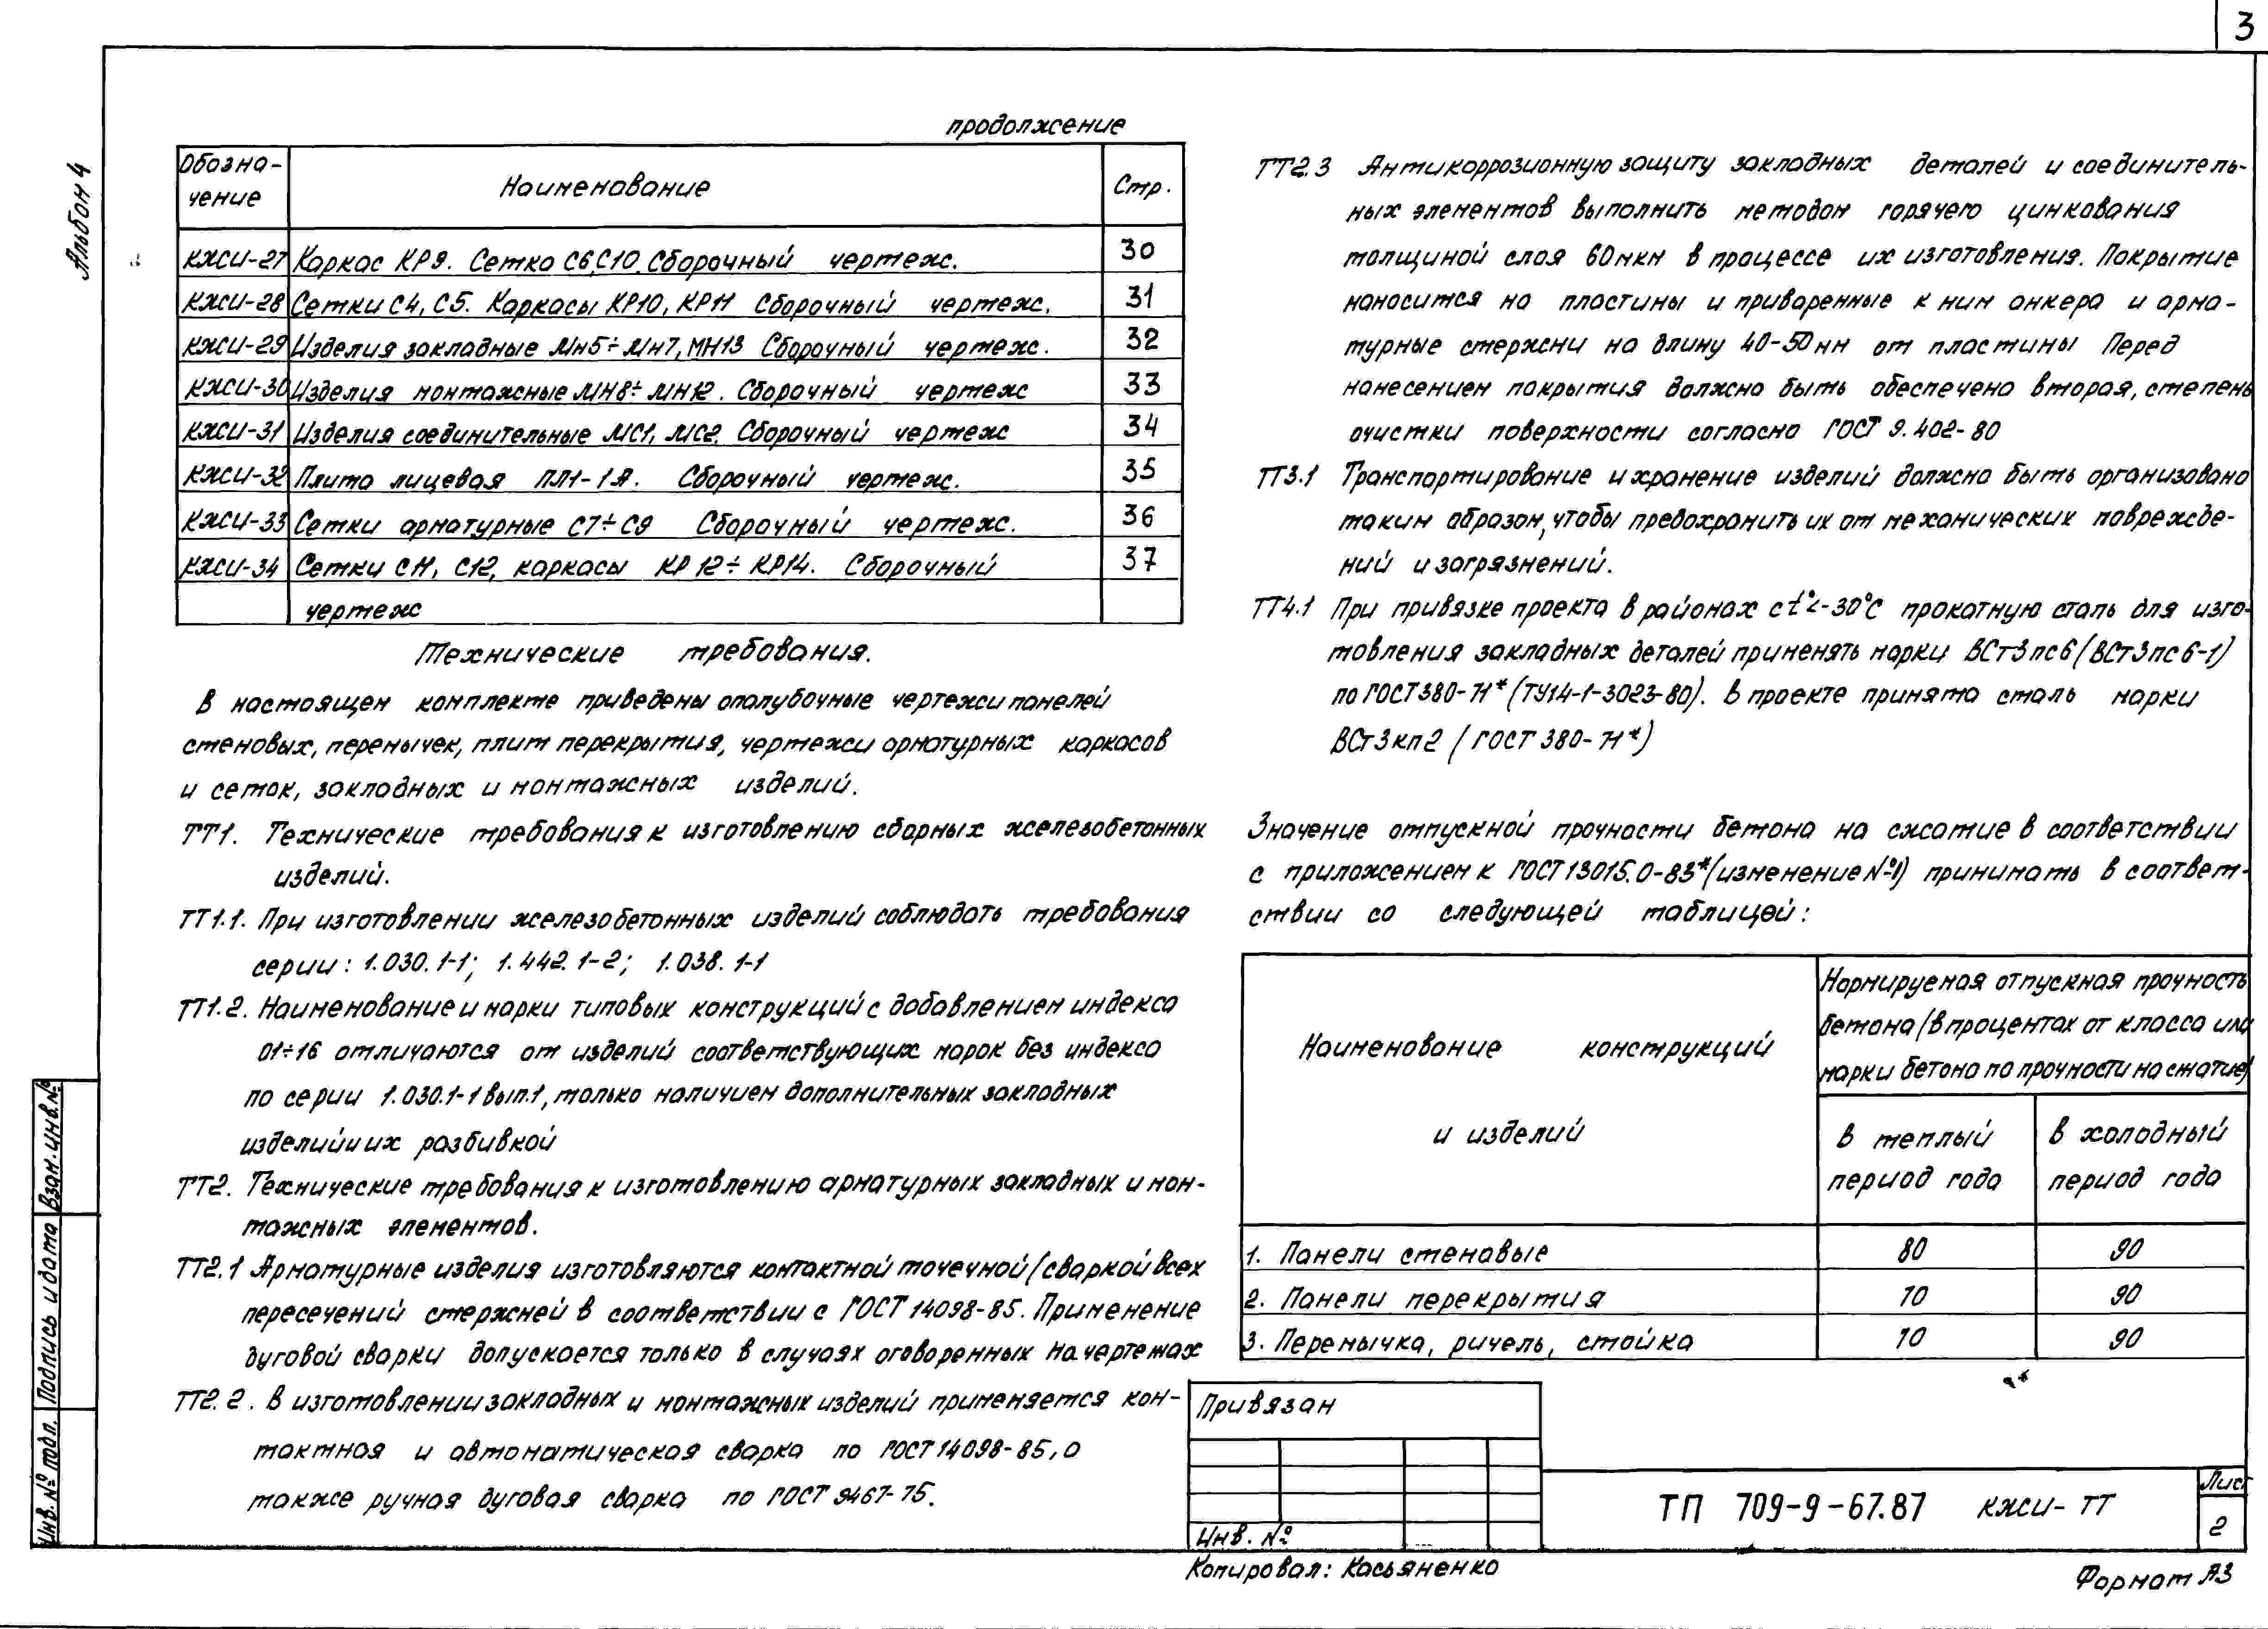 3
Альбом 4
продолжение
Обозна-
чение
Наименование
Стр.
КЖСИ-27 Каркас КР9. Сетка С6,С10. Сборочный чертеж. 30
КЖСИ-28 Сетки С4, С5. Каркасы КР10, КР11 Сборочный чертеж. 31
КЖСИ-29 Изделия закладные Мн5÷Мн7, МН13 Сборочный чертеж. 32
КЖСИ-30 Изделия монтажные МН8÷МН12. Сборочный чертеж 33
КЖСИ-31 Изделия соединительные МС1, МС2. Сборочный чертеж 34
КЖСИ-32 Плита лицевая ПЛ1-1А. Сборочный чертеж. 35
КЖСИ-33 Сетки арматурные С7÷С9 Сборочный чертеж. 36
КЖСИ-34 Сетки С11, С12, каркасы КР12÷КР14. Сборочный 37
чертеж
Технические требования.
В настоящем комплекте приведены опалубочные чертежи панелей
стеновых, перемычек, плит перекрытия, чертежи арматурных каркасов
и сеток, закладных и монтажных изделий.
ТТ1. Технические требования к изготовлению сборных железобетонных
изделий.
ТТ1.1. При изготовлении железобетонных изделий соблюдать требования
серии: 1.030.1-1; 1.442.1-2; 1.038.1-1
ТТ1.2. Наименование и марки типовых конструкций с добавлением индекса
01÷16 отличаются от изделий соответствующих марок без индекса
по серии 1.030.1-1 вып.1, только наличием дополнительных закладных
изделий и их разбивкой
ТТ2. Технические требования к изготовлению арматурных закладных и мон-
тажных элементов.
ТТ2.1 Арматурные изделия изготовляются контактной точечной (сваркой всех
пересечений стержней в соответствии с ГОСТ 14098-85. Применение
дуговой сварки допускается только в случаях оговоренных на чертежах
ТТ2.2. В изготовлении закладных и монтажных изделий применяется кон-
тактная и автоматическая сварка по ГОСТ 14098-85, а
также ручная дуговая сварка по ГОСТ 9467-75.
ТТ2.3 Антикоррозионную защиту закладных деталей и соединитель-
ных элементов выполнить методом горячего цинкования
толщиной слоя 60мкм в процессе их изготовления. Покрытие
наносится на пластины и приваренные к ним анкера и арма-
турные стержни на длину 40-50мм от пластины Перед
нанесением покрытия должна быть обеспечена вторая, степень
очистки поверхности согласно ГОСТ 9.402-80
ТТ3.1 Транспортирование и хранение изделий должно быть организовано
таким образом, чтобы предохранить их от механических поврежде-
ний и загрязнений.
ТТ4.1 При привязке проекта в районах с t°<-30°С прокатную сталь для изго-
товления закладных деталей применять марки ВСт3пс6 (ВСт3пс6-1)
по ГОСТ 380-71* (ТУ14-1-3023-80). В проекте принята сталь марки
ВСт3кп2 (ГОСТ 380-71*)
Значение отпускной прочности бетона на сжатие в соответствии
с приложением к ГОСТ 13015.0-83* (изменение №1) принимать в соответ-
ствии со следующей таблицей:
Наименование конструкций
и изделий
Нормируемая отпускная прочность
бетона (в процентах от класса или
марки бетона по прочности на сжатие)
в теплый
период года
в холодный
период года
1. Панели стеновые 80 90
2. Панели перекрытия 70 90
3. Перемычка, ригель, стойка 70 90
Привязан
Инв. №
ТП 709-9-67.87 КЖСИ-ТТ
Лист
2
Копировал: Касьяненко
Формат А3
Взам. инв. №
Подпись и дата
Инв. № подл.